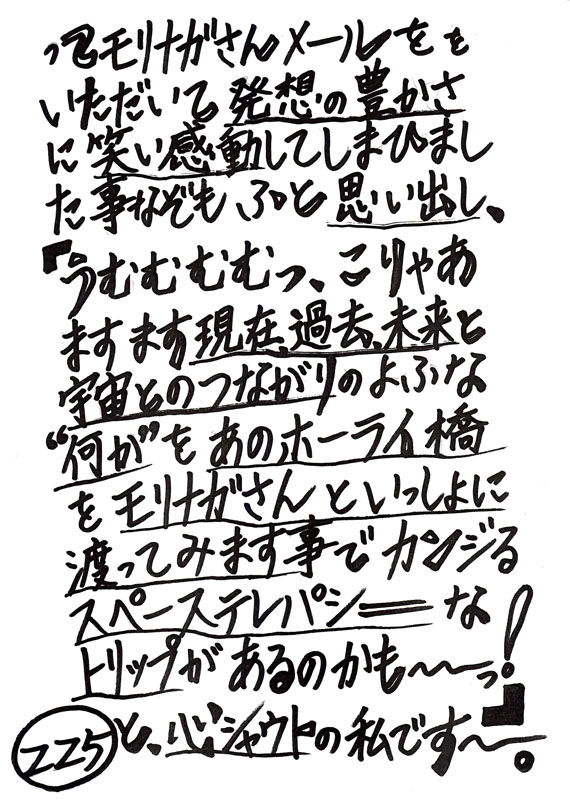 ってモリナガさんメールをを
いただいて発想の豊かさ
に笑い感動してしまひまし
た事なぞもふと思い出し、
「うむむむむっ、こりゃあ
ますます現在、過去、未来と
宇宙とのつながりのよふな
“何か”をあのホーライ橋
をモリナガさんといっしょに
渡ってみます事でカンジる
スペーステレパシーな
トリップがあるのかも〜〜っ!」
と、心でシャウトの私です〜。
225